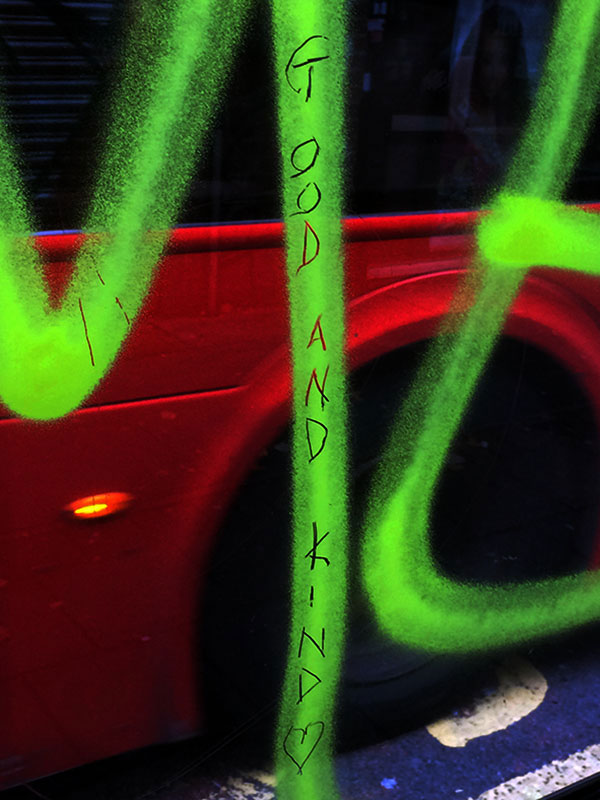 GOOD AND KIND ♡